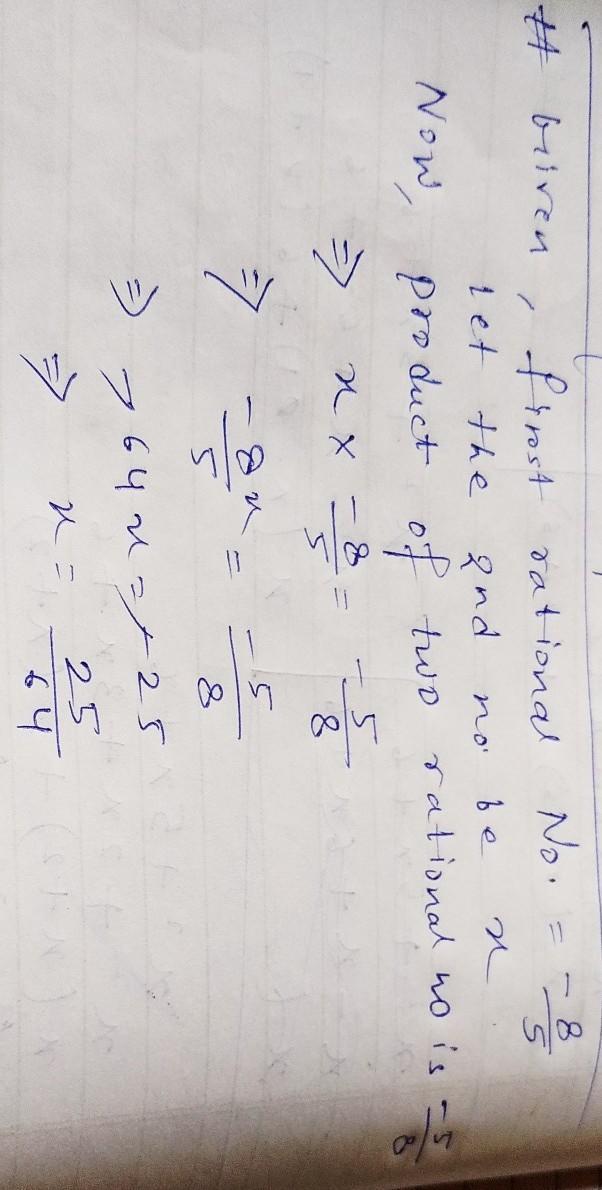 # Given, first rational No. = -8/5
Let the 2nd no. be x
Now, product of two rational no is -5/8
⇒ x × -8/5 = -5/8
⇒ -8/5 x = -5/8
⇒ -64x = -25
⇒ x = 25/64